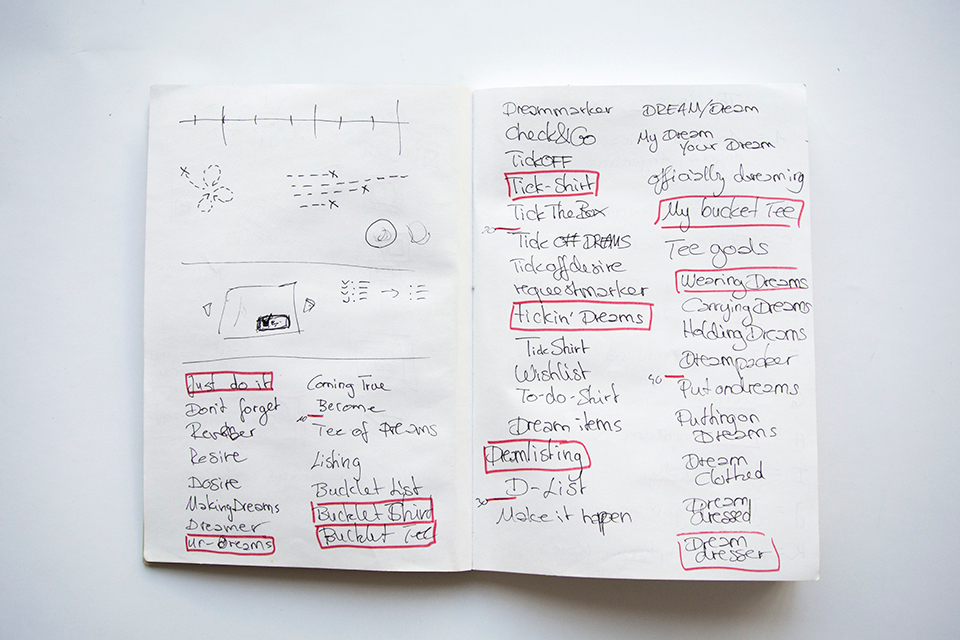 Just do it
Don't forget
Remember
Resire
Dosire
Making Dreams
Dreamer
un-dreams
Coming True
Become
10
Tee of Dreams
Listing
Bucklet List
Bucklet Shirt
Bucklet Tee
Dreammarker
Check&Go
TickOFF
Tick-Shirt
Tick The Box
20
Tick Off DREAMS
Tickoffdesire
requestmarker
tickin' Dreams
Tick Shirt
Wishlist
To-do-Shirt
Dream items
Deamlisting
D-List
30
Make it happen
DREAM/Dream
My Dream
Your Dream
officially dreaming
My bucket Tee
Tee goals
Wearing Dreams
Carrying Dreams
Holding Dreams
Dreampacker
40
Put on dreams
Putting on
Dreams
Dream
Clothed
Dream
dressed
Dream
dresser